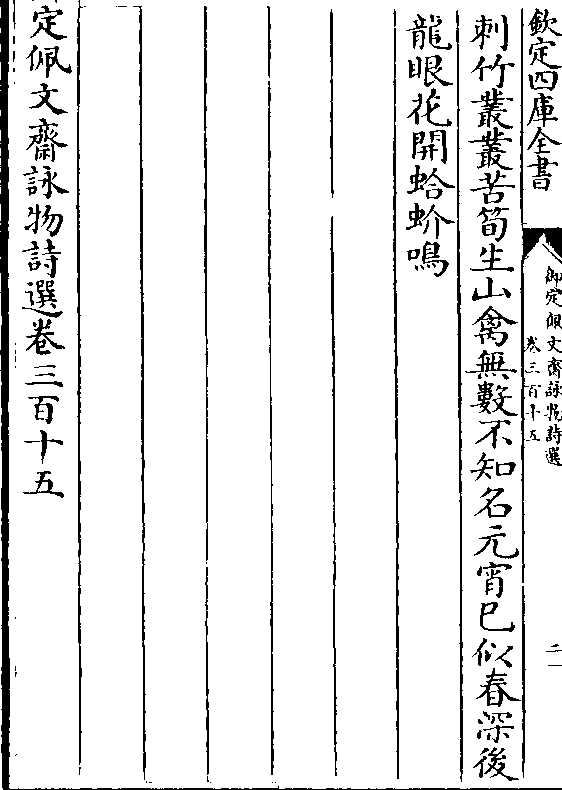 欽定四庫全書
御定佩文齋詠物詩選
卷三百十五
二
刺竹叢叢苦筍生山禽無數不知名元宵已似春深後
龍眼花開蛤蚧鳴
定佩文齋詠物詩選卷三百十五